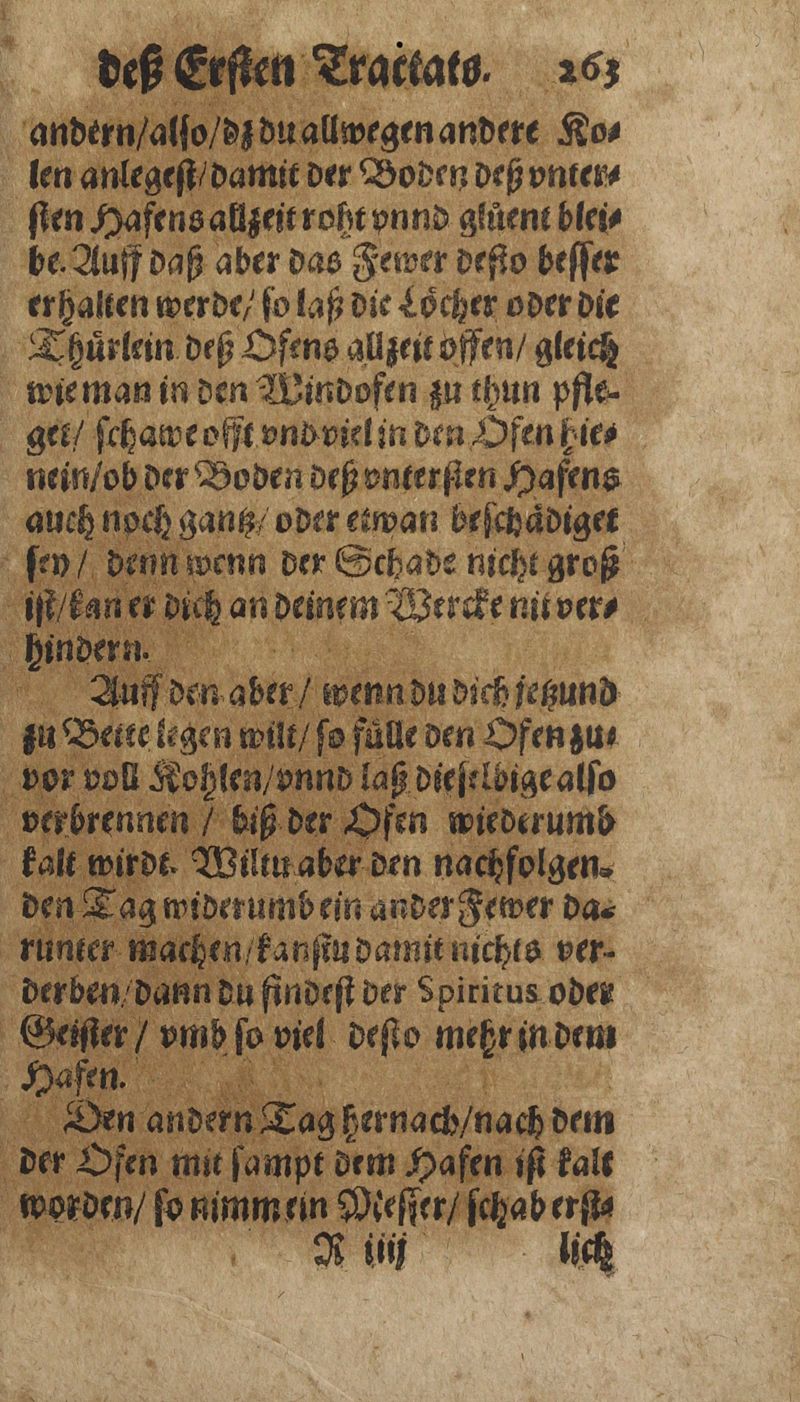 deß Ersten Tractats. 263
andern/also/dz du allwegen andere Ko⸗
len anlegest/damit der Boden deß vnter⸗
sten Hafens allzeit roht vnnd glüent blei⸗
be. Auff daß aber das Fewer desto besser
erhalten werde/ so laß die Löcher oder die
Thürlein deß Ofens allzeit offen/ gleich
wie man in den Windofen zu thun pfle⸗
get/ schawe offt vnd viel in den Ofen hie⸗
nein/ob der Boden deß vntersten Hafens
auch noch gantz/ oder etwan beschädiget
sey / denn wenn der Schade nicht groß
ist/kan er dich an deinem Wercke nit ver⸗
hindern.
Auff den aber / wenn du dich jetzund
zu Bette legen wilt/ so fülle den Ofen zu⸗
vor voll Kohlen/vnnd laß dieselbige also
verbrennen / biß der Ofen wiederumb
kalt wirdt. Wiltu aber den nachfolgen⸗
den Tag widerumb ein ander Fewer da⸗
runter machen/kanstu damit nichts ver⸗
derben/dann du findest der Spiritus oder
Geister / vmb so viel desto mehr in dem
Hafen.
Den andern Tag hernach/nach dem
der Ofen mit sampt dem Hafen ist kalt
worden/ so nimm ein Messer/ schab erst⸗
R iiij lich